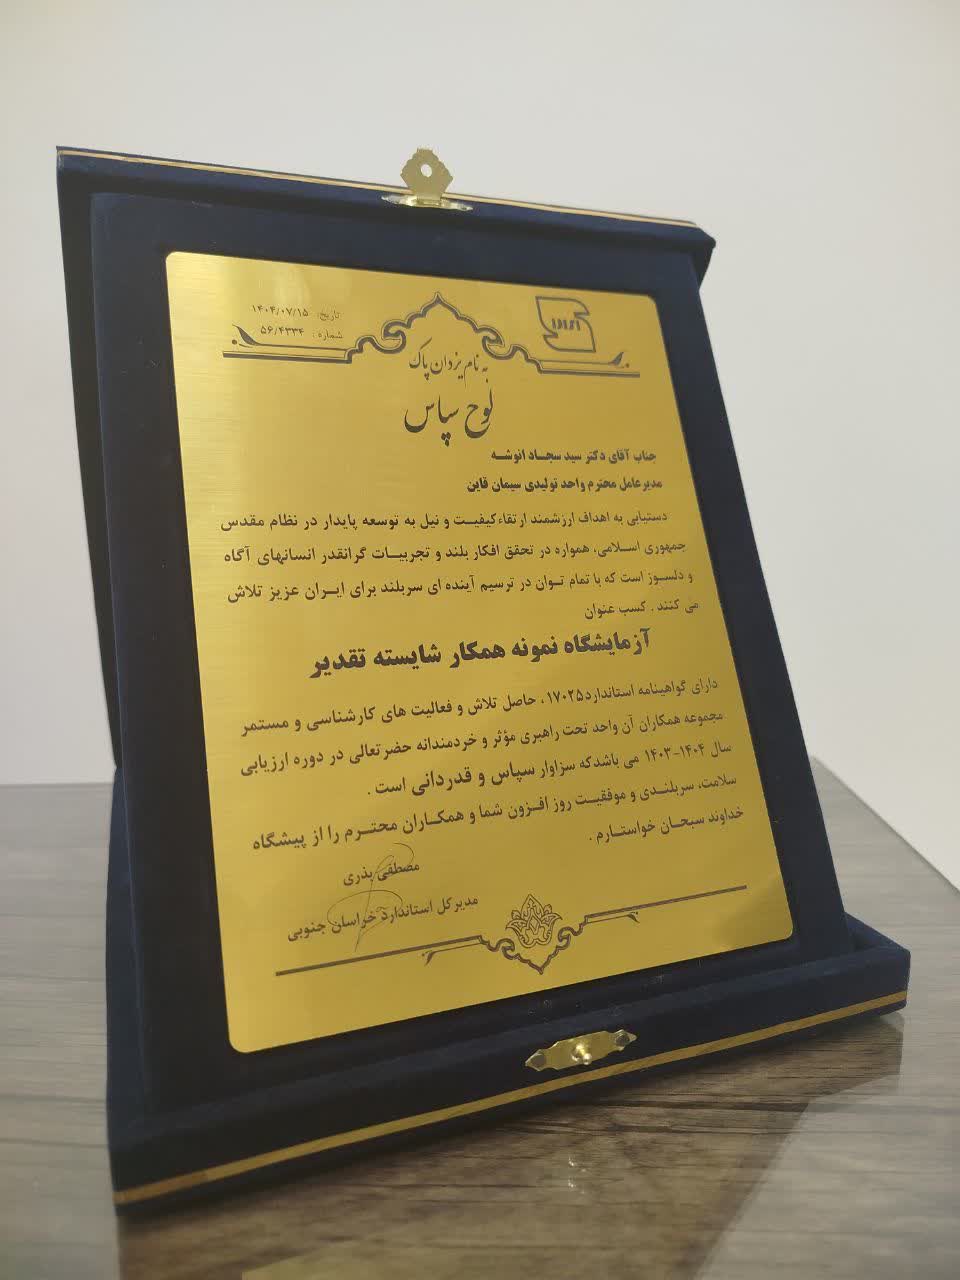 تاریخ: ۱۴۰۴/۰۷/۱۵
شماره: ۵۶/۴۳۳۴
به نام یزدان پاک
لوح سپاس
جناب آقای دکتر سید سجاد انوشه
مدیرعامل محترم واحد تولیدی سیمان قاین
دستیابی به اهداف ارزشمند ارتقاء کیفیت و نیل به توسعه پایدار در نظام مقدس
جمهوری اسلامی، همواره در تحقق افکار بلند و تجربیات گرانقدر انسانهای آگاه
و دلسوز است که با تمام توان در ترسیم آینده ای سربلند برای ایران عزیز تلاش
می کنند . کسب عنوان
آزمایشگاه نمونه همکار شایسته تقدیر
دارای گواهینامه استاندارد ۱۷۰۲۵، حاصل تلاش و فعالیت های کارشناسی و مستمر
مجموعه همکاران آن واحد تحت راهبری مؤثر و خردمندانه حضرتعالی در دوره ارزیابی
سال ۱۴۰۴-۱۴۰۳ می باشد که سزاوار سپاس و قدردانی است .
سلامت، سربلندی و موفقیت روز افزون شما و همکاران محترم را از پیشگاه
خداوند سبحان خواستارم .
مصطفی بذری
مدیرکل استاندارد خراسان جنوبی